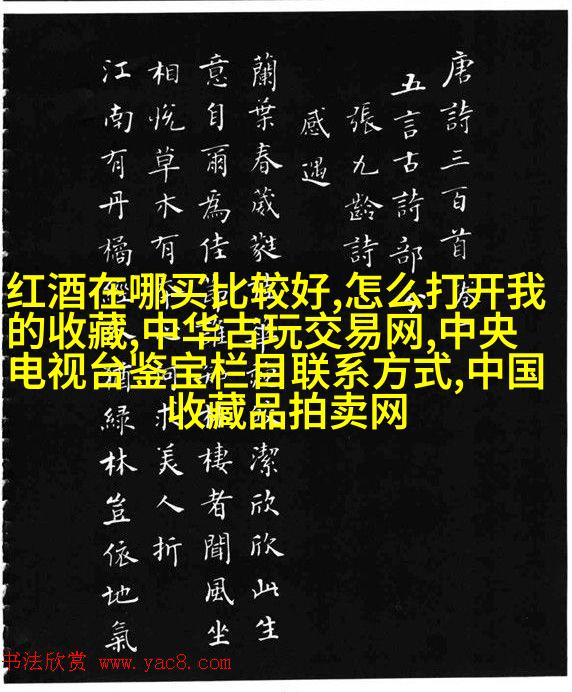 唐詩三百首
五言古詩部
張九齡詩
感遇
蘭葉春葳蕤 潔欣欣此生
意自爾為佳 棲者聞風坐
相悅草木有 求美人折
江南有丹橘 猶綠林豈依地氣
红酒在哪买比较好,怎么打开我
的收藏,中华古玩交易网,中央
电视台鉴宝栏目联系方式,中国
收藏品拍卖网
书法欣赏 www.yac8.com